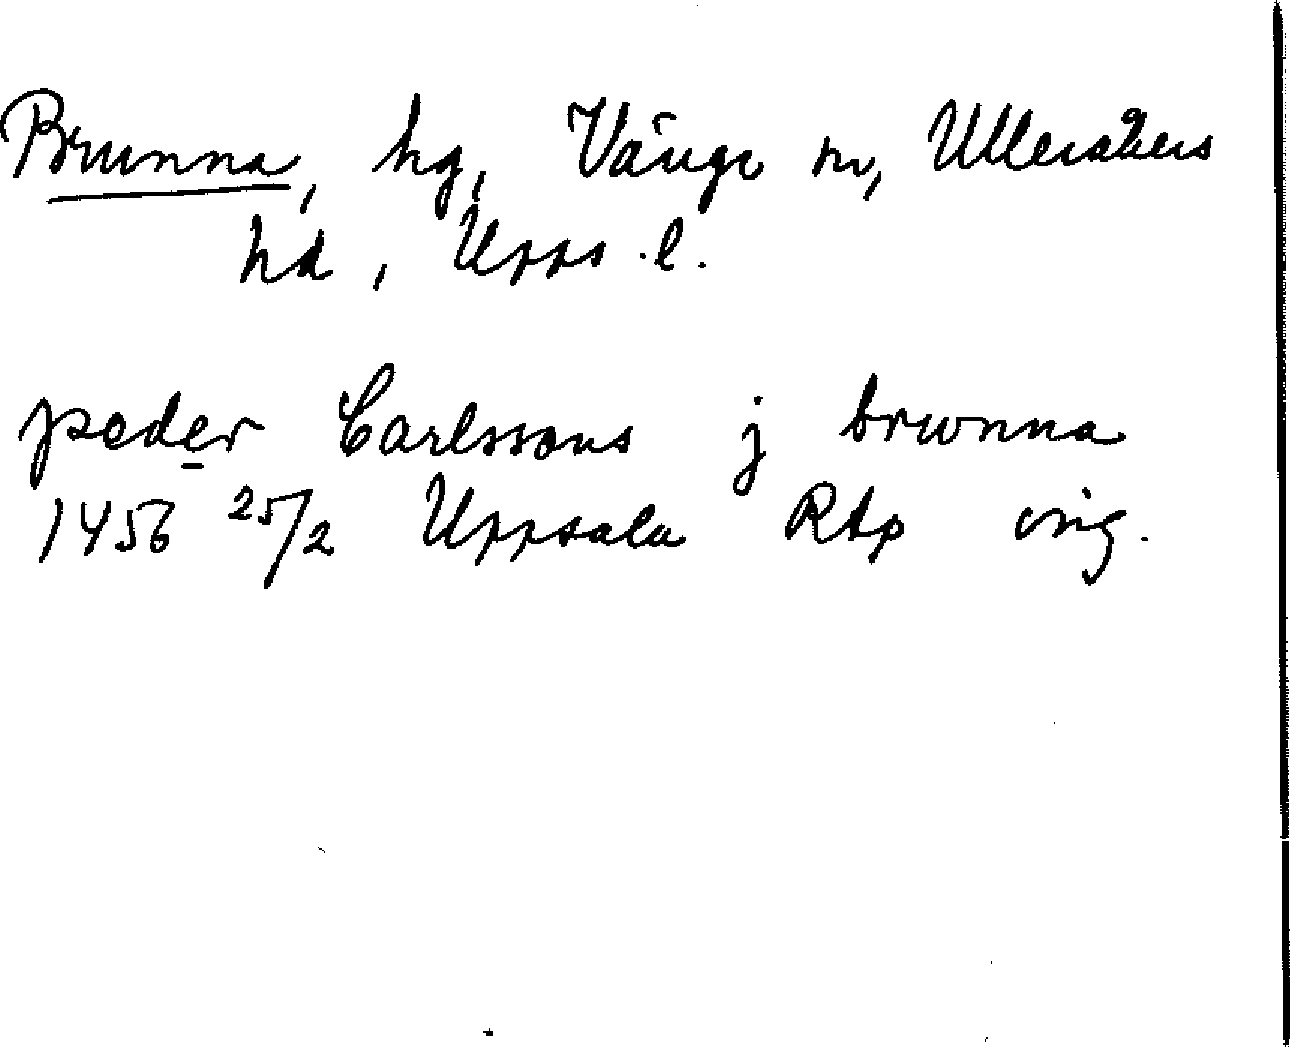 Brunna, hg, Vänge sn, Ulleråkers
hd, Upps. l.
peder Carlssons j brwnna
1456 25/2 Uppsala RAp orig.